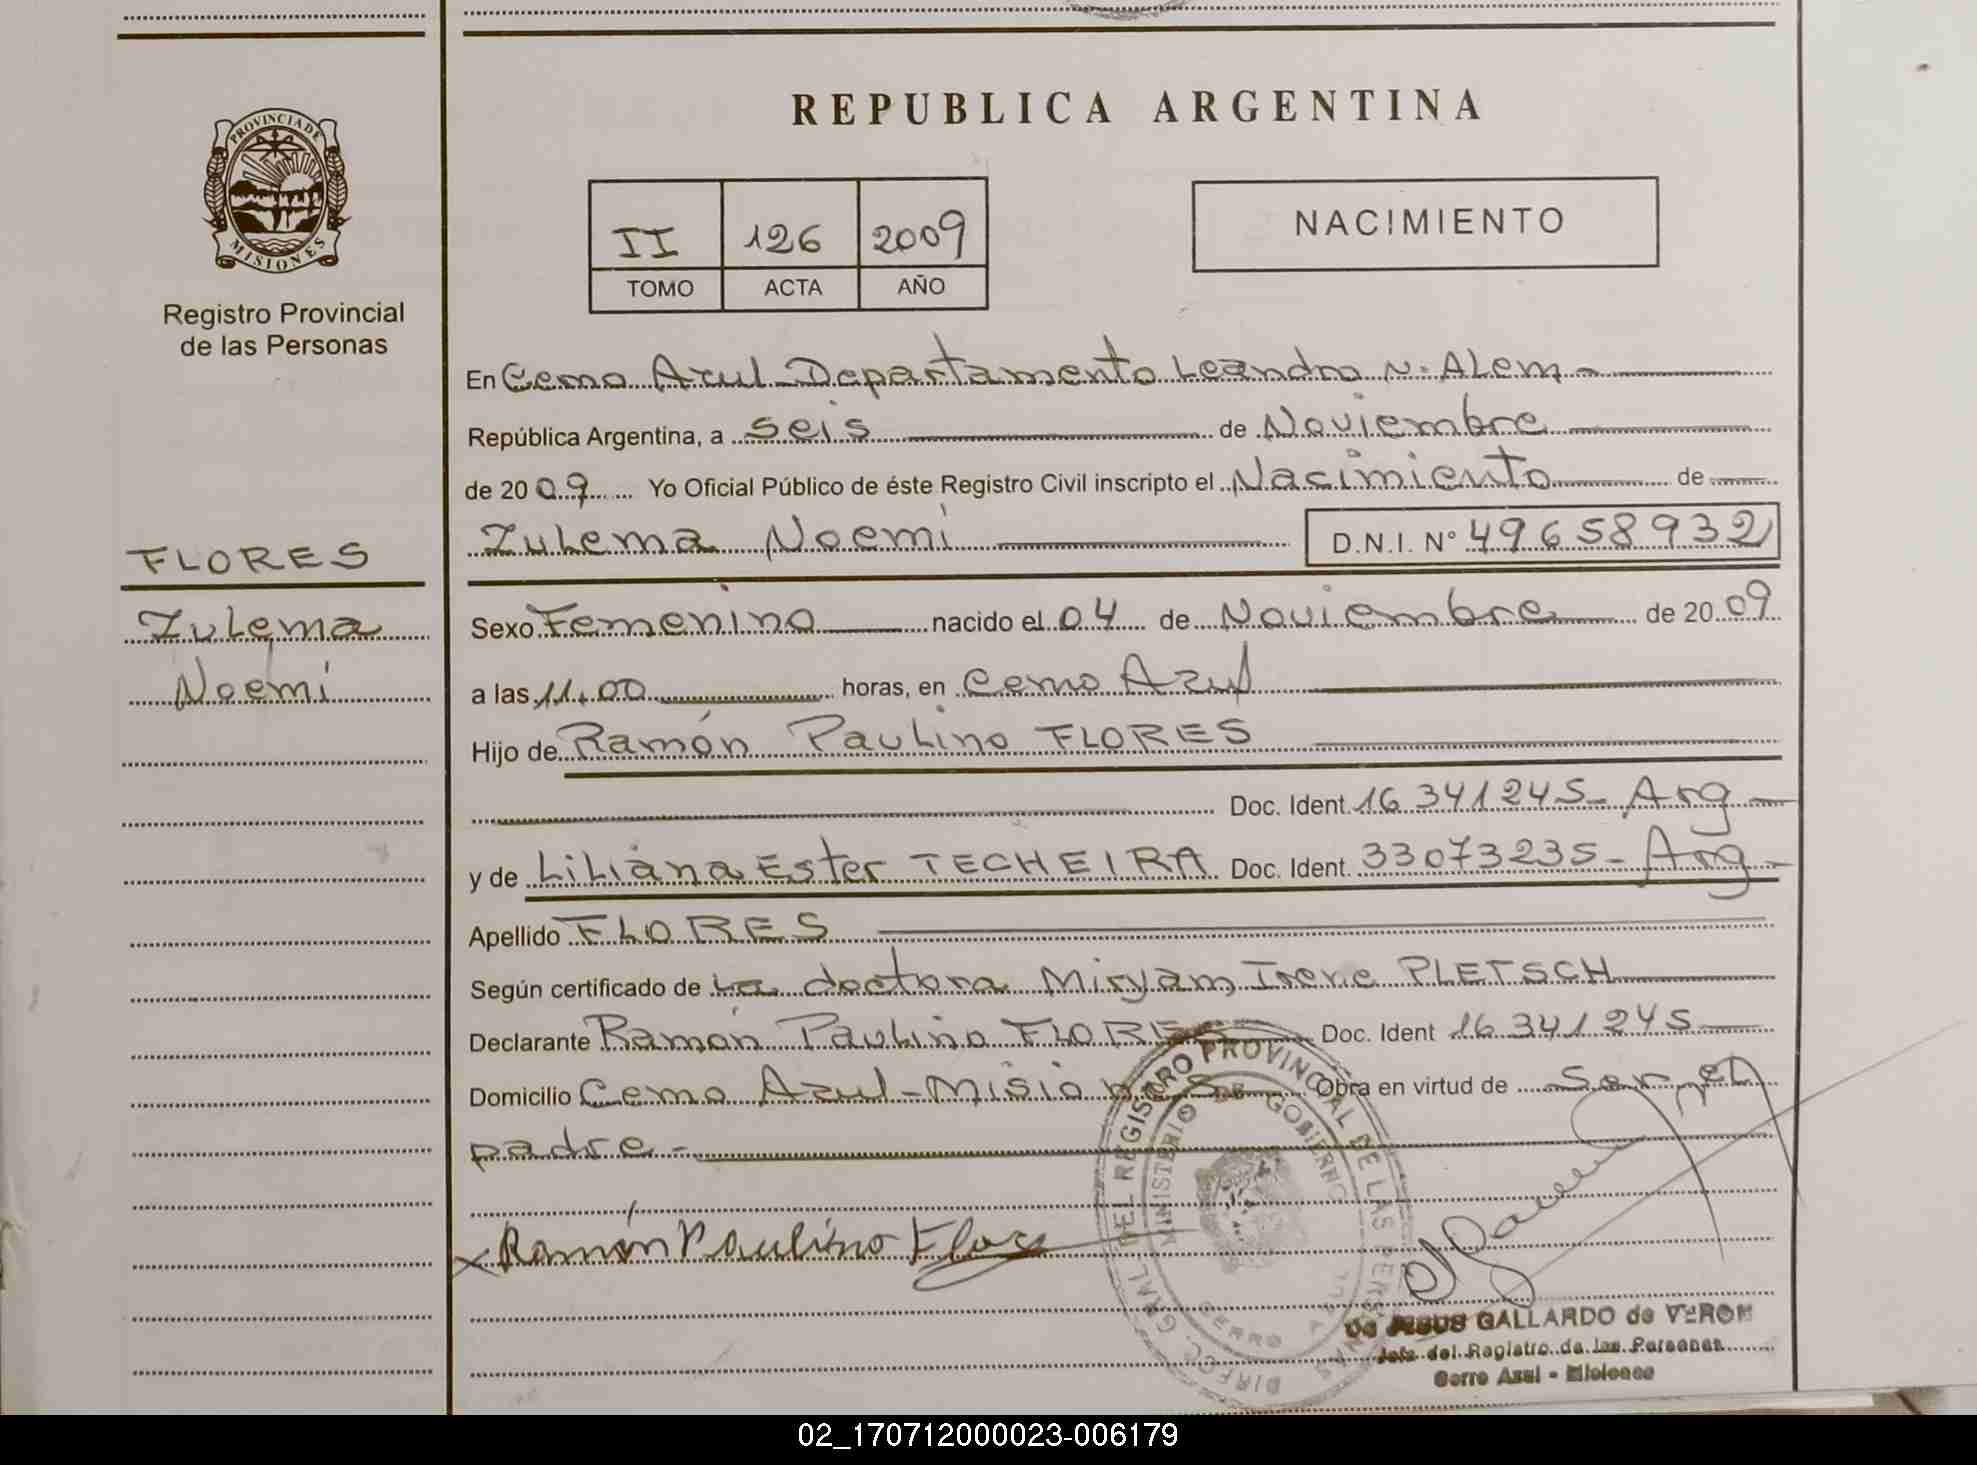 REPUBLICA ARGENTINA
PROVINCIA DE
MISIONES
Registro Provincial
de las Personas
II 126 2009
TOMO ACTA AÑO
NACIMIENTO
En Cerro Azul Departamento Leandro N. Alem -
República Argentina, a seis de Noviembre
de 2009 Yo Oficial Público de éste Registro Civil inscripto el Nacimiento de
Zulema Noemi D.N.I. N° 49658932
FLORES
Zulema
Noemi
Sexo Femenino nacido el 04 de Noviembre de 2009
a las 11.00 horas, en Cerro Azul
Hijo de Ramón Paulino FLORES
Doc. Ident. 16341245- Arg -
y de Liliana Ester TECHEIRA Doc. Ident. 33073235- Arg -
Apellido FLORES
Según certificado de La doctora Miryam Irene PLETSCH
Declarante Ramón Paulino FLORES Doc. Ident 16341245
Domicilio Cerro Azul - Misiones Obra en virtud de Ser el
padre -
x Ramón Paulino Flores
DIRECC. GRAL. DEL REGISTRO PROVINCIAL DE LAS PERSONAS
MINISTERIO DE GOBIERNO
CERRO AZUL
JESUS GALLARDO de VERON
Jefa del Registro de las Personas
Cerro Azul - Misiones
02_170712000023-006179